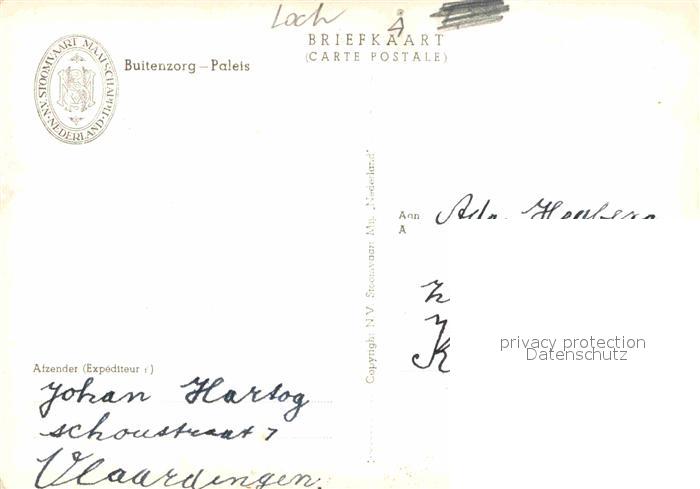 Loch
BRIEFKAART
(CARTE POSTALE)
N.V. STOOMVAART MAATSCHAPPIJ "NEDERLAND"
Buitenzorg – Paleis
Copyright N.V. Stoomvaart Mij. „Nederland"
Aan
A
Afzender (Expéditeur :)
Johan Hartog
schoustraat 7
Vlaardingen.
privacy protection
Datenschutz